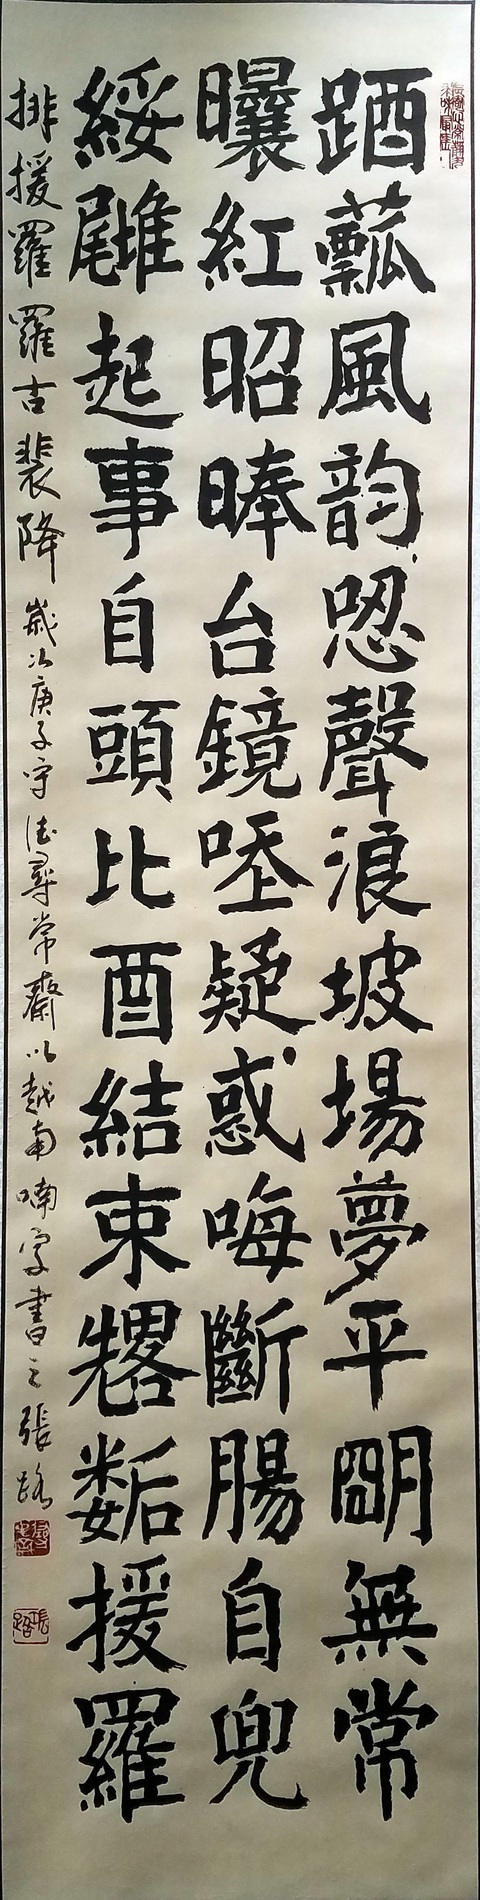 跴瓢風韵唿聲浪坡場夢平朙無常
曩紅昭㫪台鏡㕵疑惑嗨斷腸自兜
綏雖起事自頭比酉結束援羅
排援羅羅古裴降 歲次庚子守法尋常齋以越南喃字書之張路